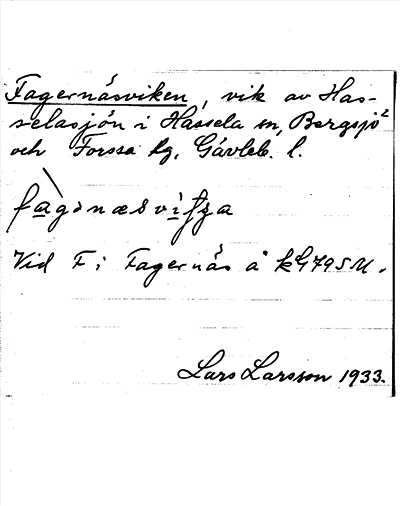 Fagernäsviken, vik av Has-
selasjön i Hassela sn, Bergsjö
och Forssa hg, Gävleb. l.
Vid F i Fagernäs å
Lars Larsson 1933.